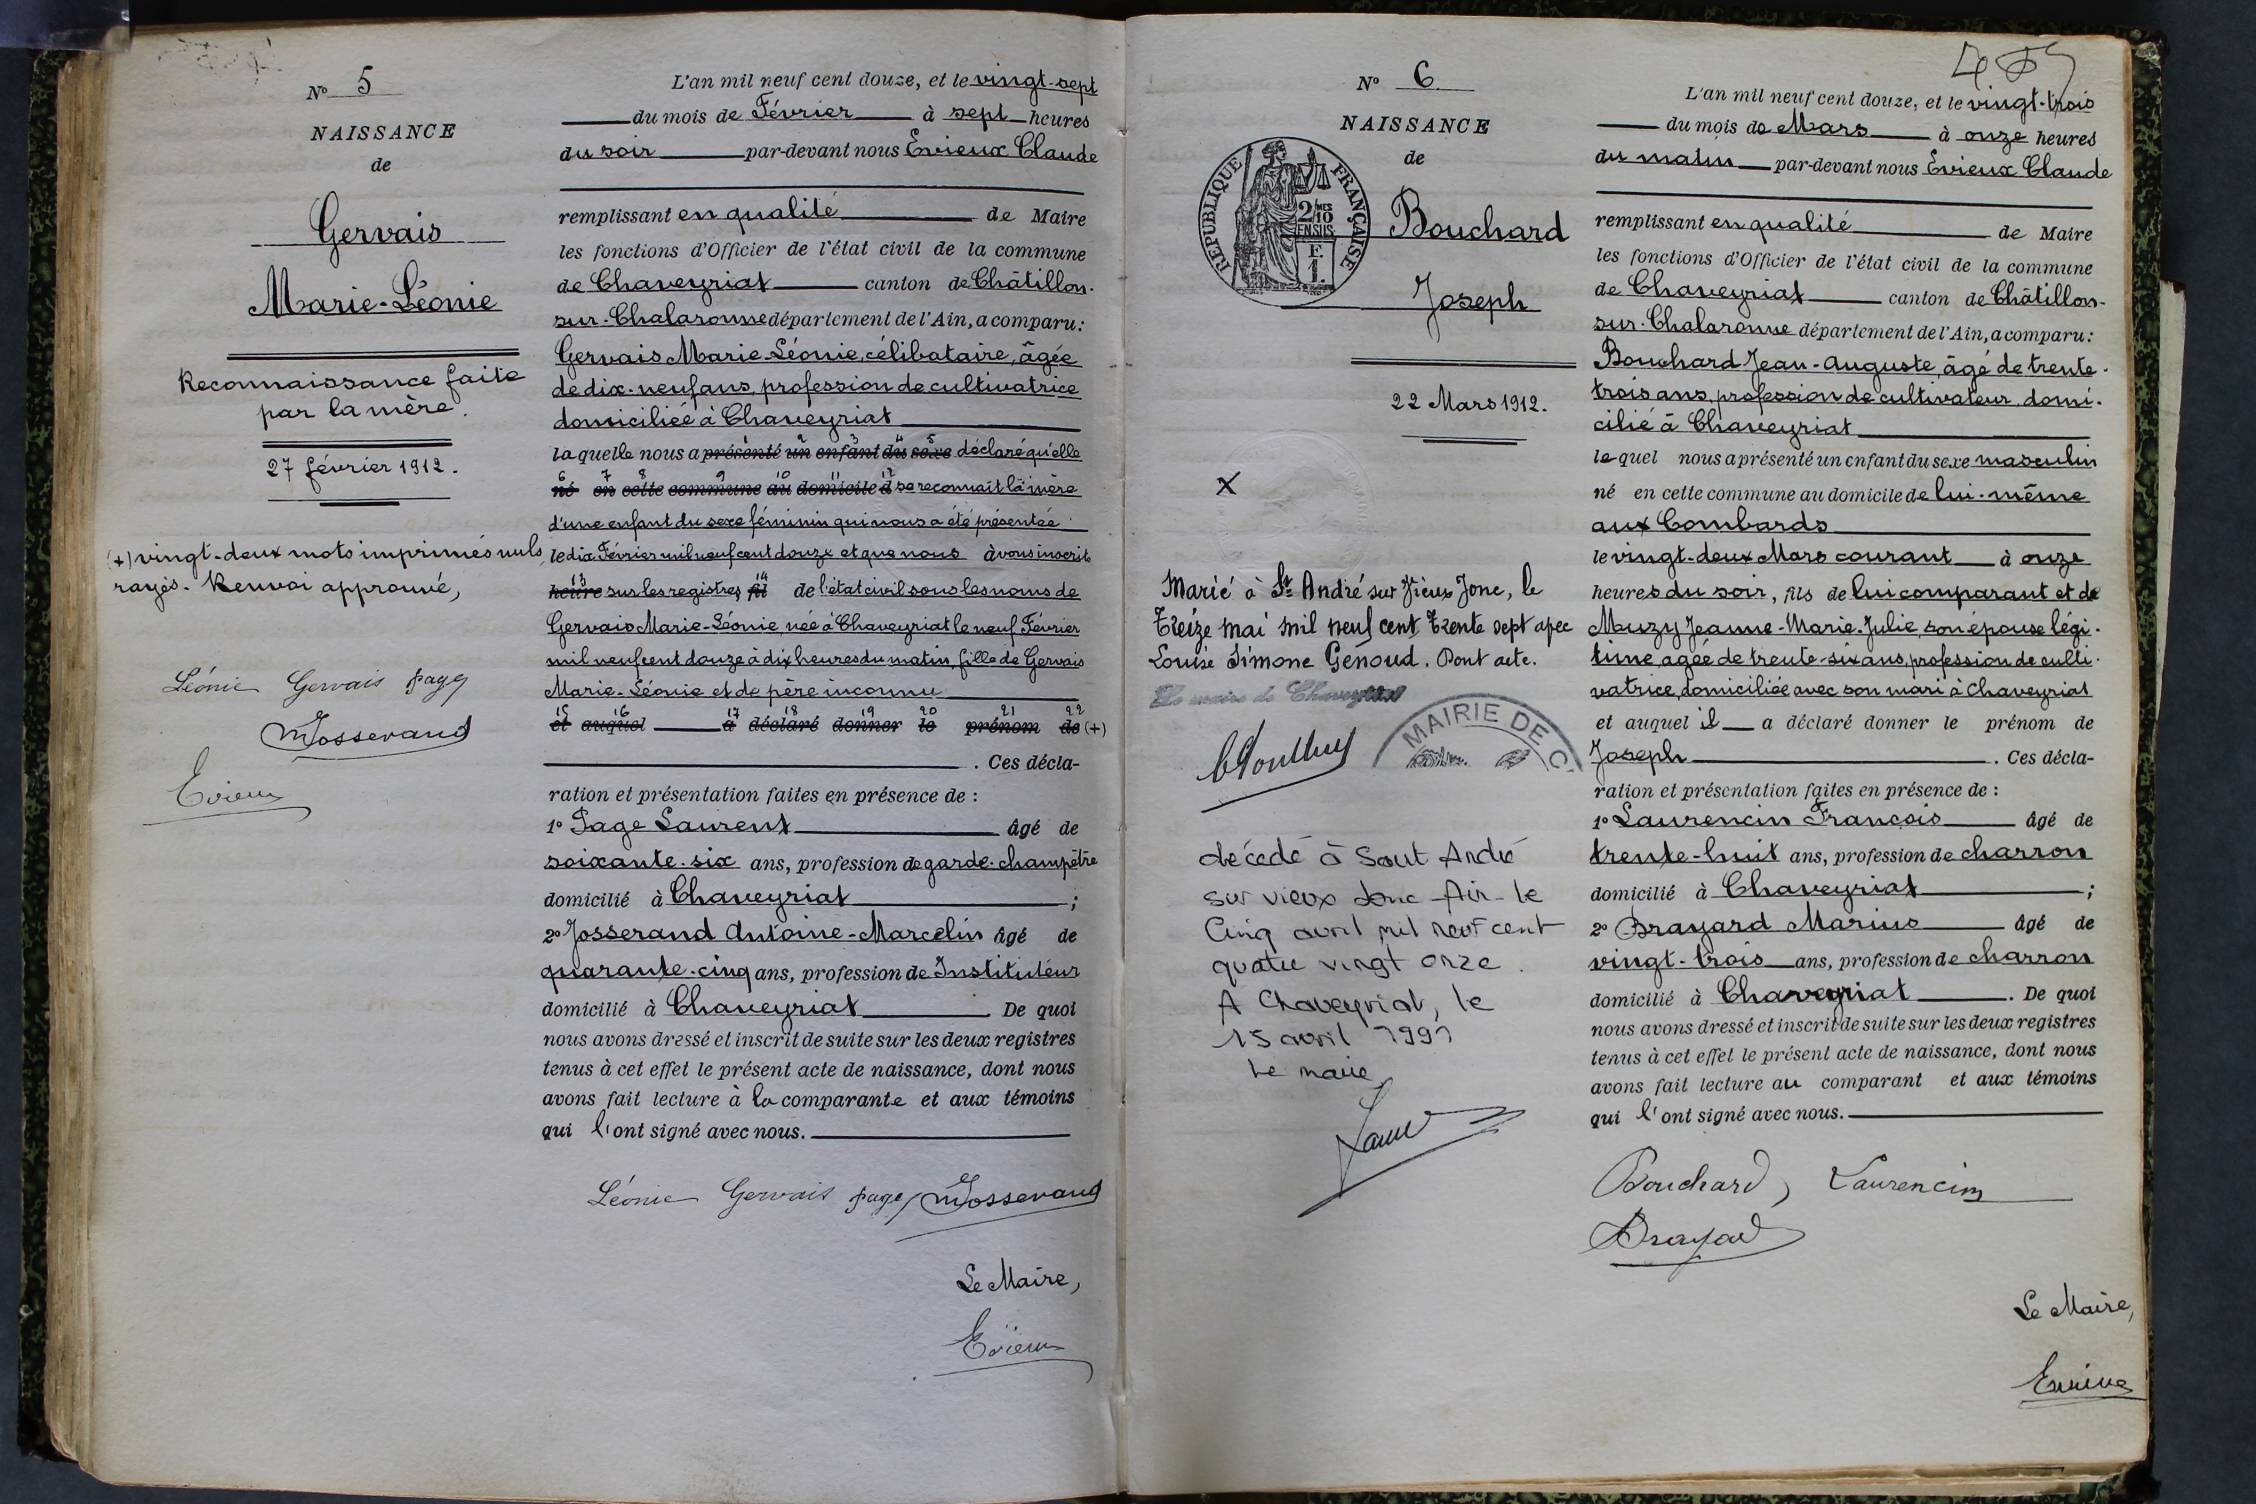 N° 5
NAISSANCE
de
Gervais
Marie-Léonie
Reconnaissance faite
par la mère.
27 février 1912.
(+) vingt-deux mots imprimés nuls
rayés. Renvoi approuvé,
Léonie Gervais page
MJosserand
Evieux
L'an mil neuf cent douze, et le vingt-sept
du mois de Février à sept heures
du soir par-devant nous Evieux Claude
remplissant en qualité de Maire
les fonctions d'Officier de l'état civil de la commune
de Chaveyriat canton de Châtillon-
sur-Chalaronne département de l'Ain, a comparu:
Gervais Marie-Léonie, célibataire, âgée
de dix-neuf ans, profession de cultivatrice
domiciliée à Chaveyriat
laquelle nous a présenté un enfant du sexe déclaré qu'elle
né en cette commune au domicile d se reconnaît la mère
d'une enfant du sexe féminin qui nous a été présentée
le dix Février mil neuf cent douze et que nous avons inscrite
heure sur les registres fil de l'état civil sous les noms de
Gervais Marie-Léonie, née à Chaveyriat le neuf Février
mil neuf cent douze à dix heures du matin, fille de Gervais
Marie-Léonie et de père inconnu
et auquel a déclaré donner le prénom de (+)
. Ces décla-
ration et présentation faites en présence de :
1° Page Laurent âgé de
soixante-six ans, profession de garde-champêtre
domicilié à Chaveyriat ;
2° Josserand Antoine-Marcelin âgé de
quarante-cinq ans, profession de Instituteur
domicilié à Chaveyriat. De quoi
nous avons dressé et inscrit de suite sur les deux registres
tenus à cet effet le présent acte de naissance, dont nous
avons fait lecture à la comparante et aux témoins
qui l'ont signé avec nous.
Léonie Gervais page MJosserand
Le Maire,
Evieux
N° 6
NAISSANCE
de
RÉPUBLIQUE FRANÇAISE
2/10 MES
EN SUS
F.
1.
Bouchard
Joseph
22 Mars 1912.
X
Marié à St André sur Vieux Jonc, le
treize mai mil neuf cent trente sept avec
Louise Simone Genoud. Dont acte.
Le maire de Chaveyriat
MAIRIE DE C
décédé à Saint André
sur vieux Jonc - Ain - le
Cinq avril mil neuf cent
quatre vingt onze.
A Chaveyriat, le
15 avril 1991
Le maire
L'an mil neuf cent douze, et le vingt-trois
du mois de Mars à onze heures
du matin par-devant nous Evieux Claude
remplissant en qualité de Maire
les fonctions d'Officier de l'état civil de la commune
de Chaveyriat canton de Châtillon-
sur-Chalaronne département de l'Ain, a comparu:
Bouchard Jean-Auguste, âgé de trente-
trois ans, profession de cultivateur, domi-
cilié à Chaveyriat
lequel nous a présenté un enfant du sexe masculin
né en cette commune au domicile de lui-même
aux Combards
le vingt-deux Mars courant à onze
heures du soir, fils de lui comparant et de
Muzy Jeanne-Marie-Julie, son épouse légi-
time, agée de trente-six ans, profession de culti-
vatrice, domiciliée avec son mari à Chaveyriat
et auquel il a déclaré donner le prénom de
Joseph. Ces décla-
ration et présentation faites en présence de :
1° Laurencin François âgé de
trente-huit ans, profession de charron
domicilié à Chaveyriat ;
2° Brayard Marius âgé de
vingt-trois ans, profession de charron
domicilié à Chaveyriat. De quoi
nous avons dressé et inscrit de suite sur les deux registres
tenus à cet effet le présent acte de naissance, dont nous
avons fait lecture au comparant et aux témoins
qui l'ont signé avec nous.
Bouchard, Laurencin
Brayard
Le Maire,
Evieux